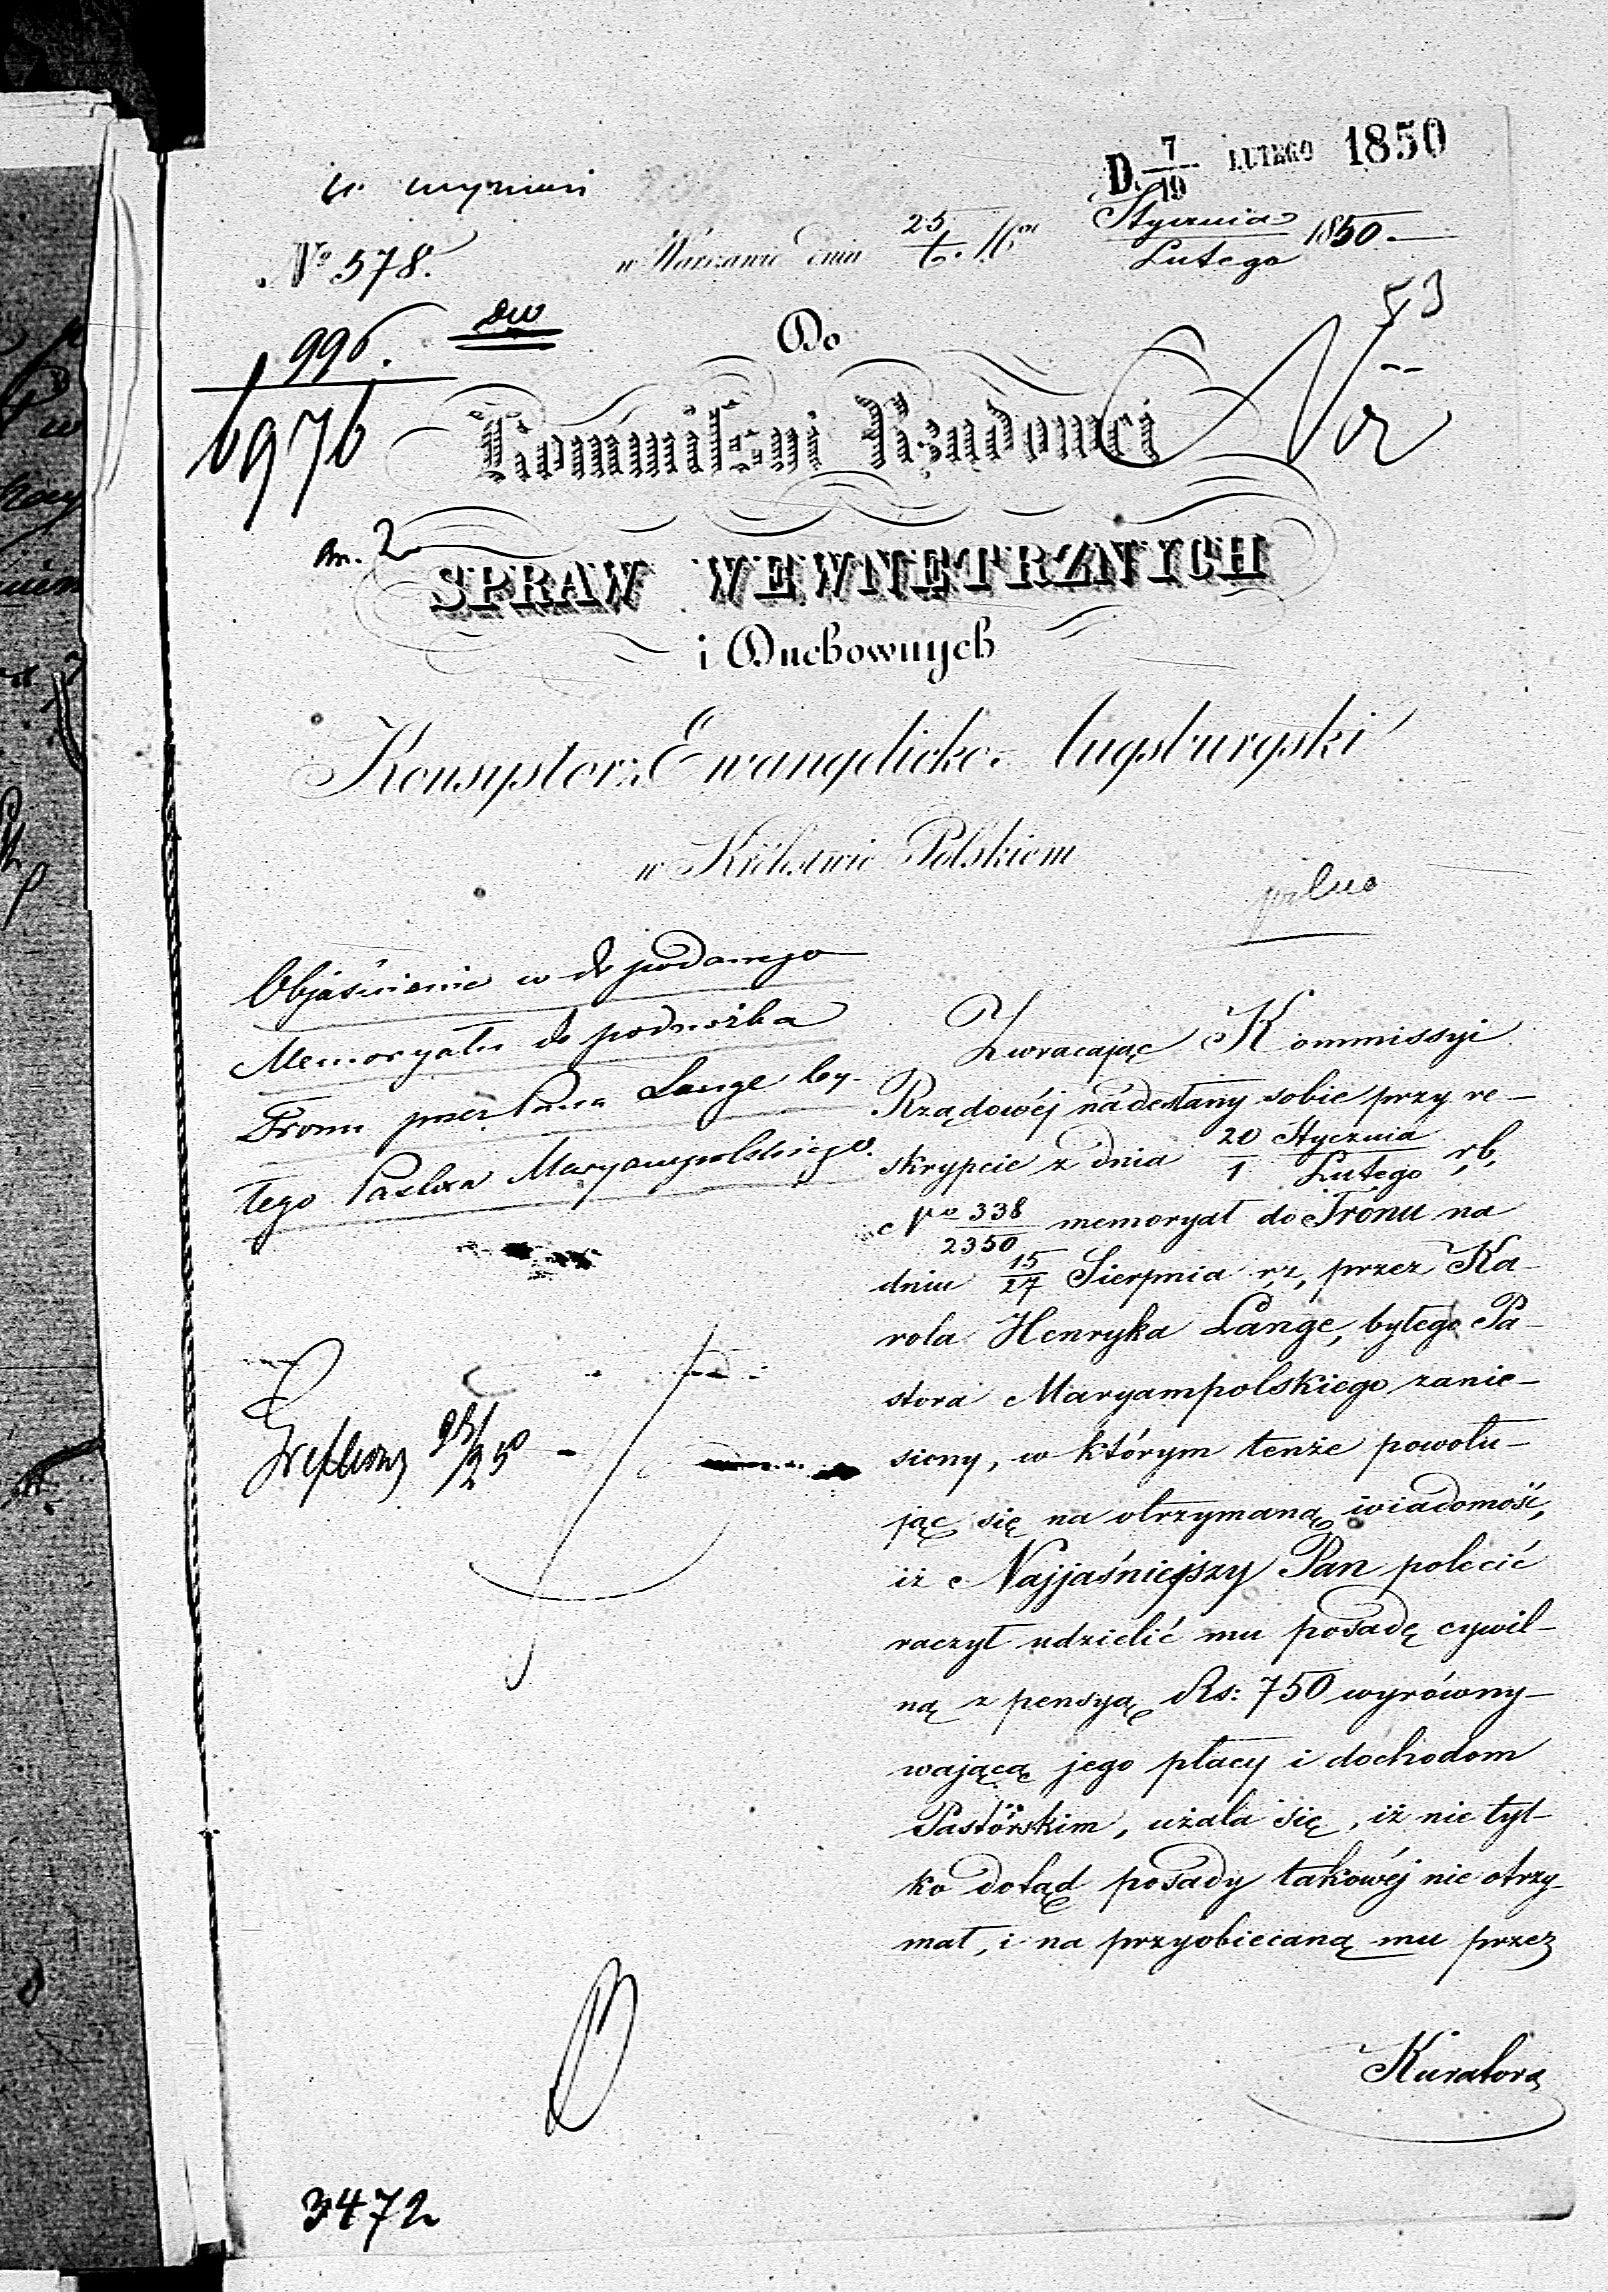 D. 7/19 LUTEGO 1850
No 578.
w Warszawie dnia 25/6 Stycznia/Lutego 1850.
53
996.
6976
Do
Kommissyi Rządowej
SPRAW WEWNĘTRZNYCH
i Duchownych
Konsystorz Ewangelicko-Augsburgski
w Królestwie Polskiem
pilno
Objaśnienie w do podanego
Memoryału do podnóżka
Tronu przez Pana Lange by-
łego Pastora Maryampolskiego.
Zwracając Kommissyi
Rządowéj nadesłany sobie przy re-
skrypcie z dnia 20/1 Stycznia/Lutego r,b,
No 338/2350 memoryał do Tronu na
dniu 15/27 Sierpnia r,z, przez Ka-
rola Henryka Lange, byłego Pa-
stora Maryampolskiego zanie-
siony, w którym tenże powołu-
jąc się na otrzymaną wiadomość,
iż Najjaśniejszy Pan polecić
raczył udzielić mu posadę cywil-
ną z pensyą Rs: 750 wyrówny-
wającą jego płacy i dochodom
Pastorskim, użala się, iż nie tyl-
ko dotąd posady takowéj nie otrzy-
mał, i na przyobiecaną mu przez
Kuratora
3472